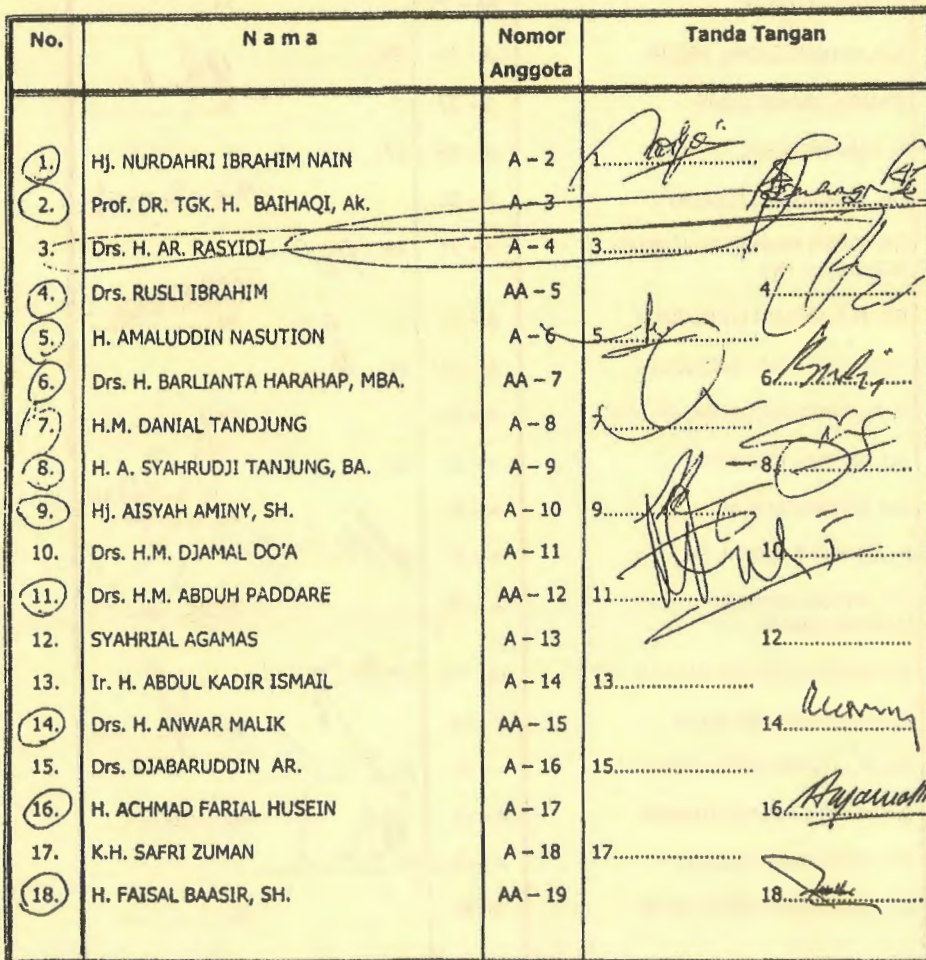 No. N a m a Nomor Anggota Tanda Tangan
1. Hj. NURDAHRI IBRAHIM NAIN A – 2 1
2. Prof. DR. TGK. H. BAIHAQI, Ak. A – 3
3. Drs. H. AR. RASYIDI A – 4 3
4. Drs. RUSLI IBRAHIM AA – 5 4
5. H. AMALUDDIN NASUTION A – 6 5
6. Drs. H. BARLIANTA HARAHAP, MBA. AA – 7 6
7. H.M. DANIAL TANDJUNG A – 8 7
8. H. A. SYAHRUDJI TANJUNG, BA. A – 9 8
9. Hj. AISYAH AMINY, SH. A – 10 9
10. Drs. H.M. DJAMAL DO'A A – 11 10
11. Drs. H.M. ABDUH PADDARE AA – 12 11
12. SYAHRIAL AGAMAS A – 13 12
13. Ir. H. ABDUL KADIR ISMAIL A – 14 13
14. Drs. H. ANWAR MALIK AA – 15 14
15. Drs. DJABARUDDIN AR. A – 16 15
16. H. ACHMAD FARIAL HUSEIN A – 17 16
17. K.H. SAFRI ZUMAN A – 18 17
18. H. FAISAL BAASIR, SH. AA – 19 18